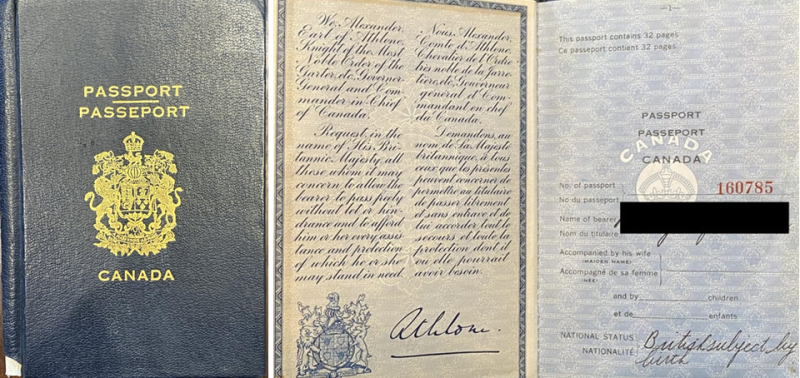 PASSPORT
PASSEPORT
CANADA
We, Alexander,
Earl of Athlone,
Knight of the Most
Noble Order of the
Garter, etc., Governor
General and Com-
mander in Chief
of Canada.
Request, in the
name of His Bri-
tannic Majesty, all
those whom it may
concern to allow the
bearer to pass freely
without let or hin-
drance and to afford
him or her every assis
tance and protection
of which he or she
may stand in need.
Nous, Alexander,
Comte d'Athlone,
Chevalier de l'Ordre
très noble de la Jarre-
tière, etc., Gouverneur
général et Com-
mandant en chef
du Canada.
Demandons, au
nom de Sa Majesté
britannique, à tous
ceux que les présentes
peuvent concerner de
permettre au titulaire
de passer librement
et sans entrave et de
lui accorder tout le
secours et toute la
protection dont il
ou elle pourrait
avoir besoin.
Athlone.
—1—
This passport contains 32 pages
Ce passeport contient 32 pages
PASSPORT
PASSEPORT
CANADA
CANADA
No. of passport
160785
No du passeport
Name of bearer
Nom du titulaire
Accompanied by his wife
(MAIDEN NAME)
Accompagné de sa femme
(NÉE)
and by children
et de enfants
NATIONAL STATUS
NATIONALITÉ
British subject by
birth